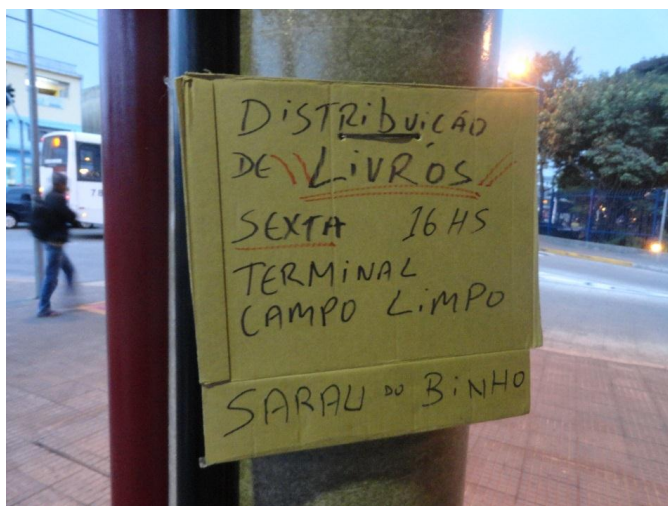 DiSTRibuiCÃO
DE LiVRos
SEXTA 16 HS
TERMiNAL
CAMPO LiMPO
SARAU DO BiNHO